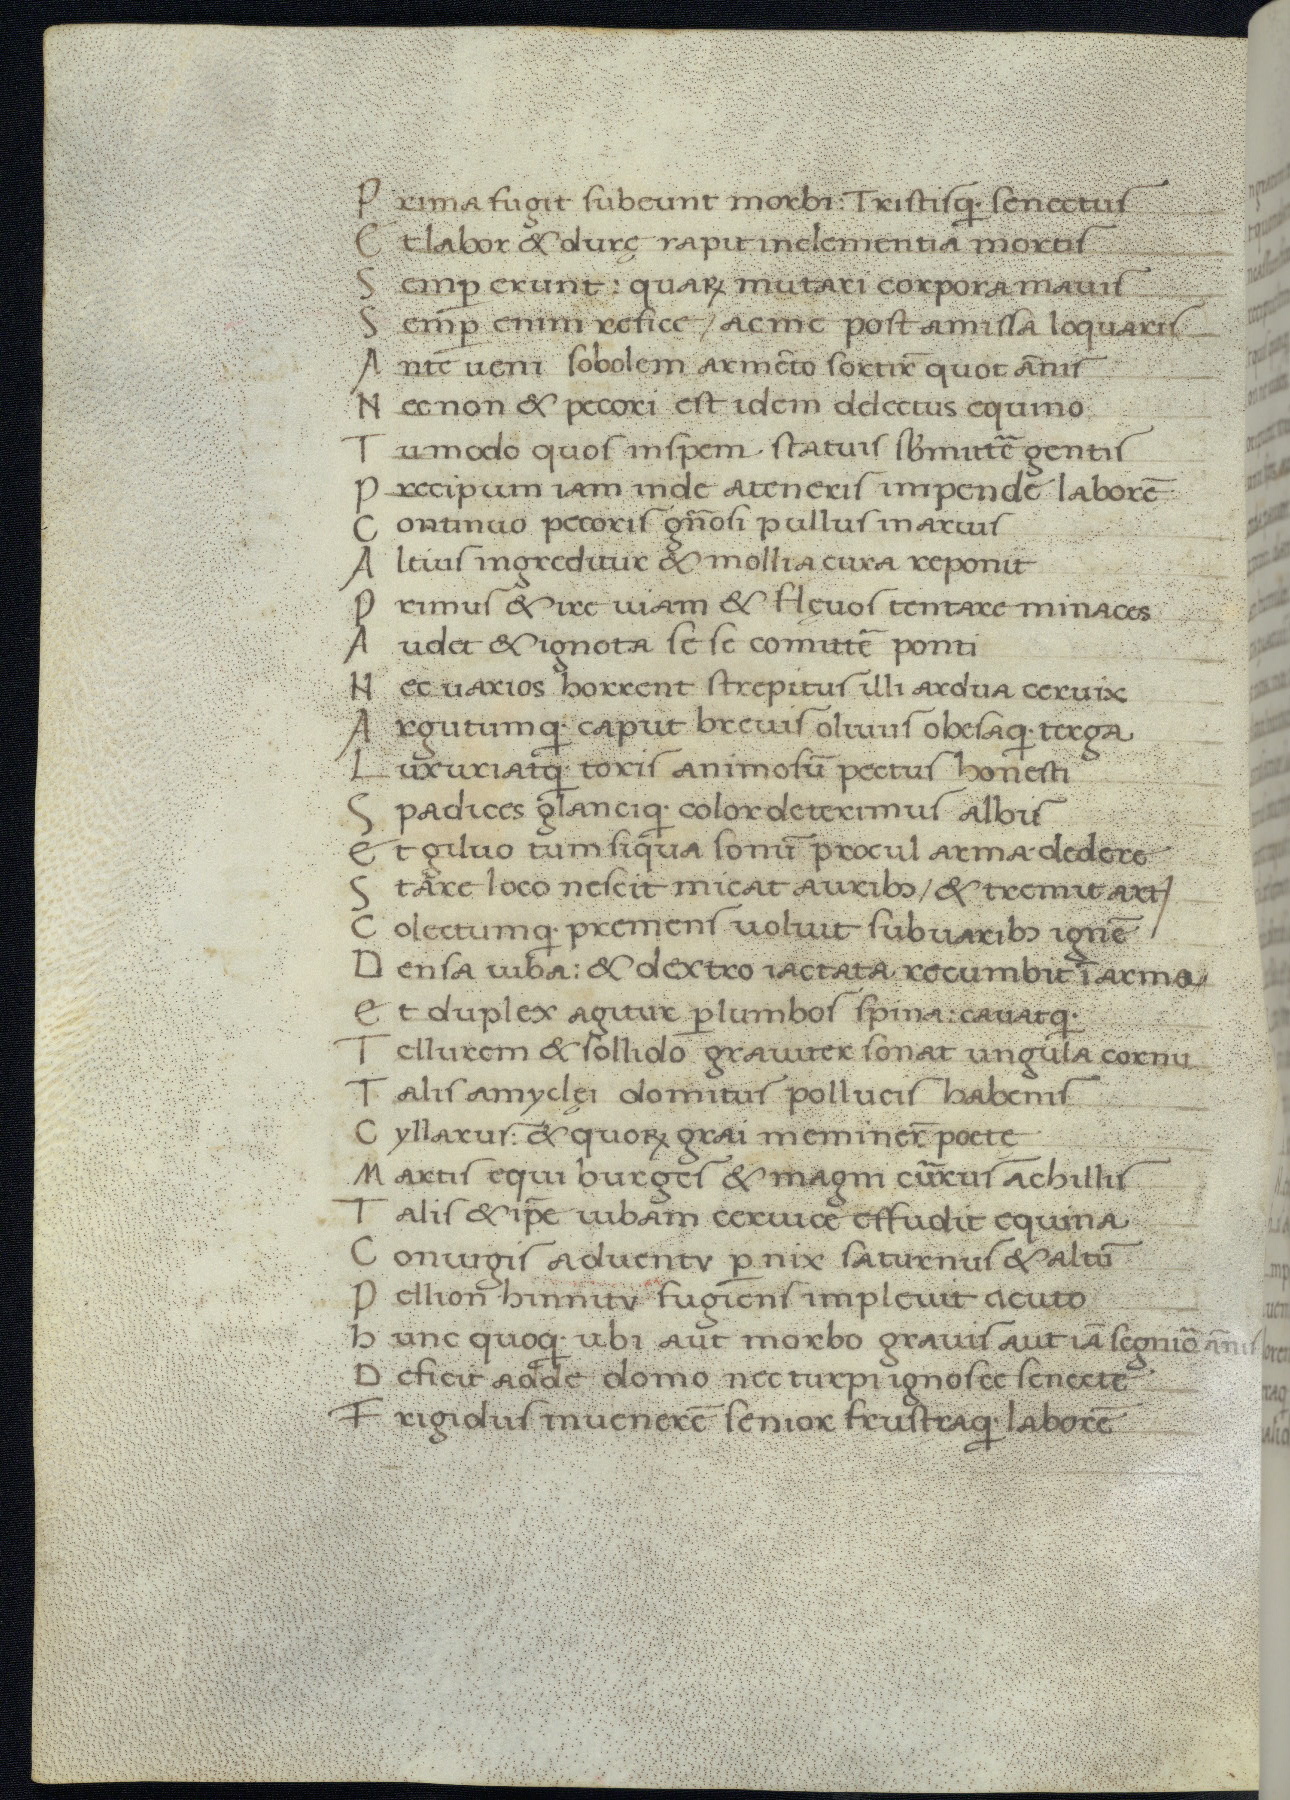 P rima fugit subeunt morbi: Tristisq; senectus
E t labor & durę rapit inclementia mortis
S emꝑ erunt: quaꝝ mutari corpora mauis
S emꝑ enim refice / ac me post amissa loquaris
A ntē ueni sobolem armēto sortir̄ quot ānis
N ec non & pecori est idem delectus equino
T u modo quos in spem statuis sb̄mittē gentis
P recipuum iam inde a teneris impende laborē
C ontinuo pecoris gn̄osi pullus in aruis
A ltius ingreditur & mollia cura reponit
P rimus & ire uiam & flęuos temtare minaces
A udet & ignota se se comittē ponti
N ec uarios horrent strepitus illi ardua ceruix
A rgutumq; caput breuis oluus obesaq; terga
L uxuriatq; toris animosū pectus honesti
S padices glanciq; color deterimus albis
e t giluo tum siqua sonū procul arma dedere
S tare loco nescit micat auribꝫ / & tremit art/
C olectumq; premens uoluit sub naribꝫ ignē
D ensa iuba: & dextro iactata recumbit ī armo
e t duplex agitur ꝑ lumbos spina: cauatq;
T ellurem & sollido grauiter sonat ungula cornu
T alis amyclęi domitus pollucis habenis
C yllarus: & quoꝝ grai meminer̄ poete
M artis equi burges & magni curr̄us achillis
T alis & ip̄e iubam ceruice effudit equina
C oniugis aduentv ꝑnix saturnus & altū
P ellion hinnitv fugiens impleuit acuto
h unc quoq; ubi aut morbo grauis aut iā segniō ānis
D eficit adde domo nec turpi ignosce senecte
F rigidus in uenerē senior frustraq; laborē